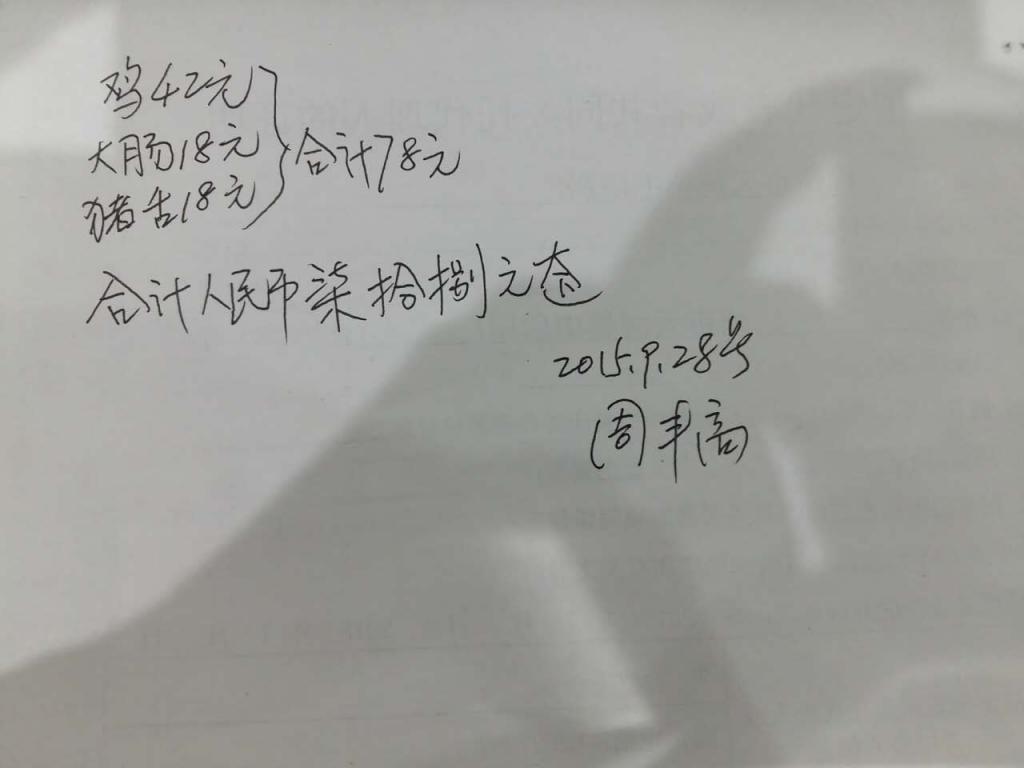 鸡42元
大肠18元
猪舌18元
合计78元
合计人民币柒拾捌元
2015.9.28号
周丰高